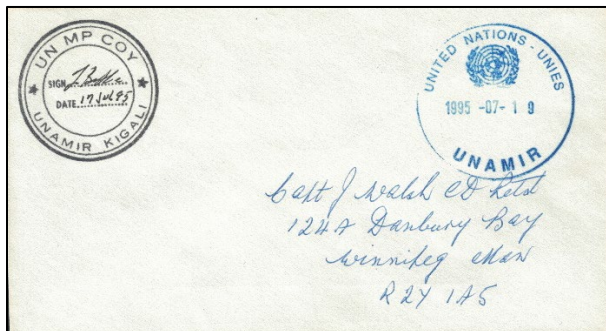 UN MP COY
SIGN
DATE 17 Jul 95
UNAMIR KIGALI
UNITED NATIONS - UNIES
1995 -07- 1 9
UNAMIR
Capt J Walsh CD Retd
124A Danbury Bay
Winnipeg Man
R2Y 1A5